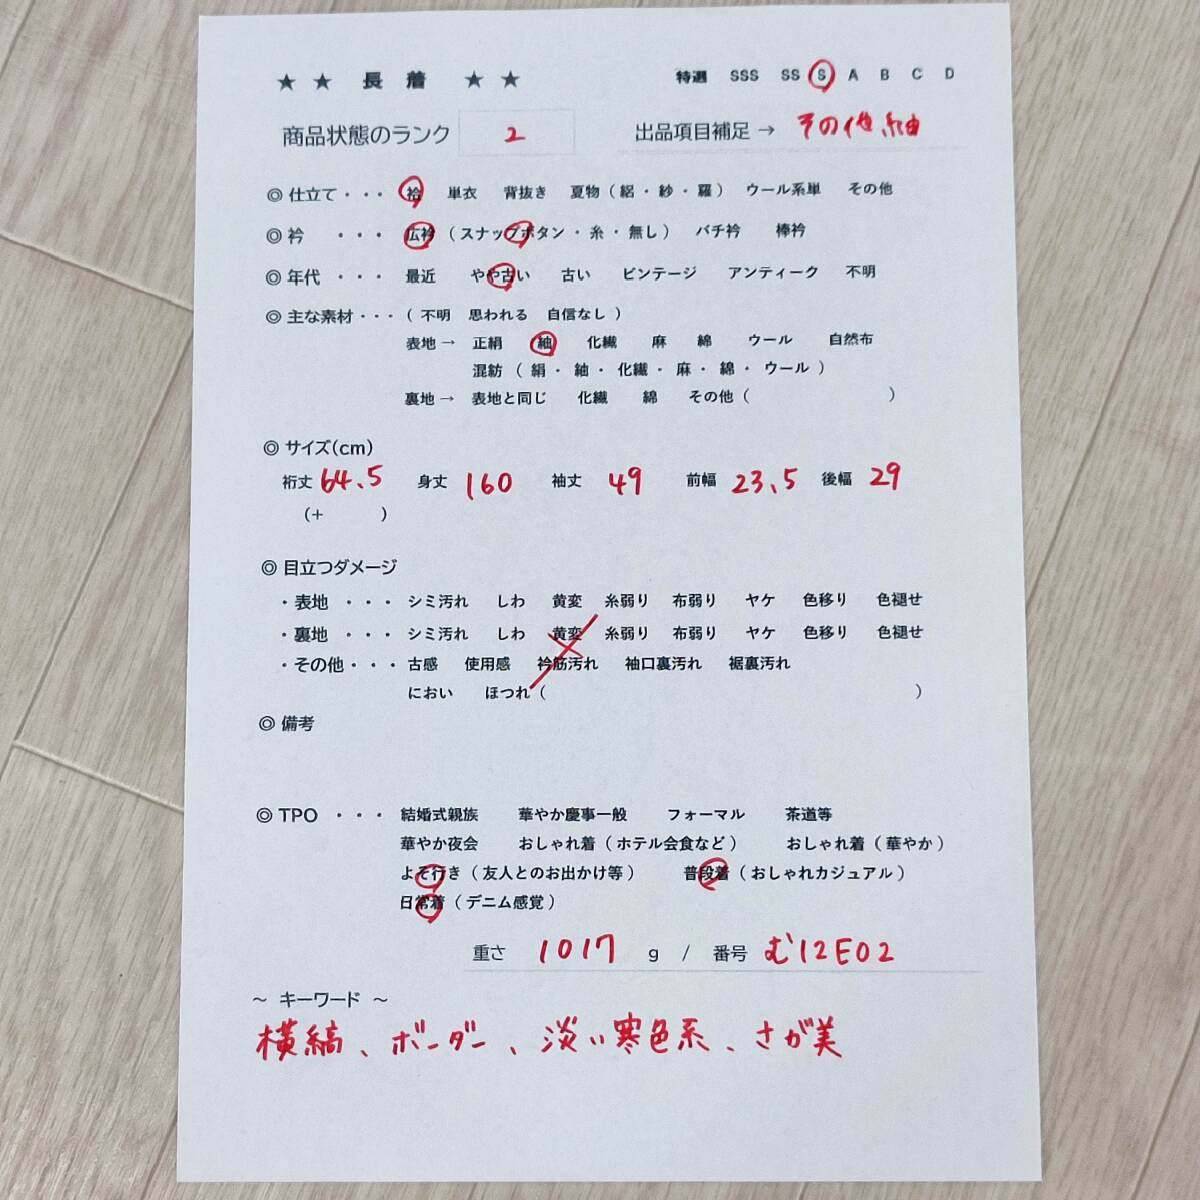 ★ ★ 長 着 ★ ★ 特選 SSS SS S A B C D
商品状態のランク 2 出品項目補足→ その他紬
◎ 仕立て・・・ 袷 単衣 背抜き 夏物(絽・紗・羅) ウール系単 その他
◎ 衿 ・・・ 広衿 (スナップボタン・糸・無し) バチ衿 棒衿
◎ 年代 ・・・ 最近 やや古い 古い ビンテージ アンティーク 不明
◎ 主な素材・・・ (不明 思われる 自信なし)
表地→ 正絹 紬 化繊 麻 綿 ウール 自然布
混紡 (絹・紬・化繊・麻・綿・ウール)
裏地→ 表地と同じ 化繊 綿 その他( )
◎ サイズ(cm)
裄丈 64.5 身丈 160 袖丈 49 前幅 23.5 後幅 29
(+ )
◎ 目立つダメージ
・表地 ・・・ シミ汚れ しわ 黄変 糸弱り 布弱り ヤケ 色移り 色褪せ
・裏地 ・・・ シミ汚れ しわ 黄変 糸弱り 布弱り ヤケ 色移り 色褪せ
・その他・・・ 古感 使用感 衿筋汚れ 袖口裏汚れ 裾裏汚れ
におい ほつれ( )
◎ 備考
◎ TPO ・・・ 結婚式親族 華やか慶事一般 フォーマル 茶道等
華やか夜会 おしゃれ着(ホテル会食など) おしゃれ着(華やか)
よそ行き(友人とのお出かけ等) 普段着(おしゃれカジュアル)
日常着(デニム感覚)
重さ 1017 g / 番号 む12E02
～ キーワード ～
横縞、ボーダー、淡い寒色系、さが美